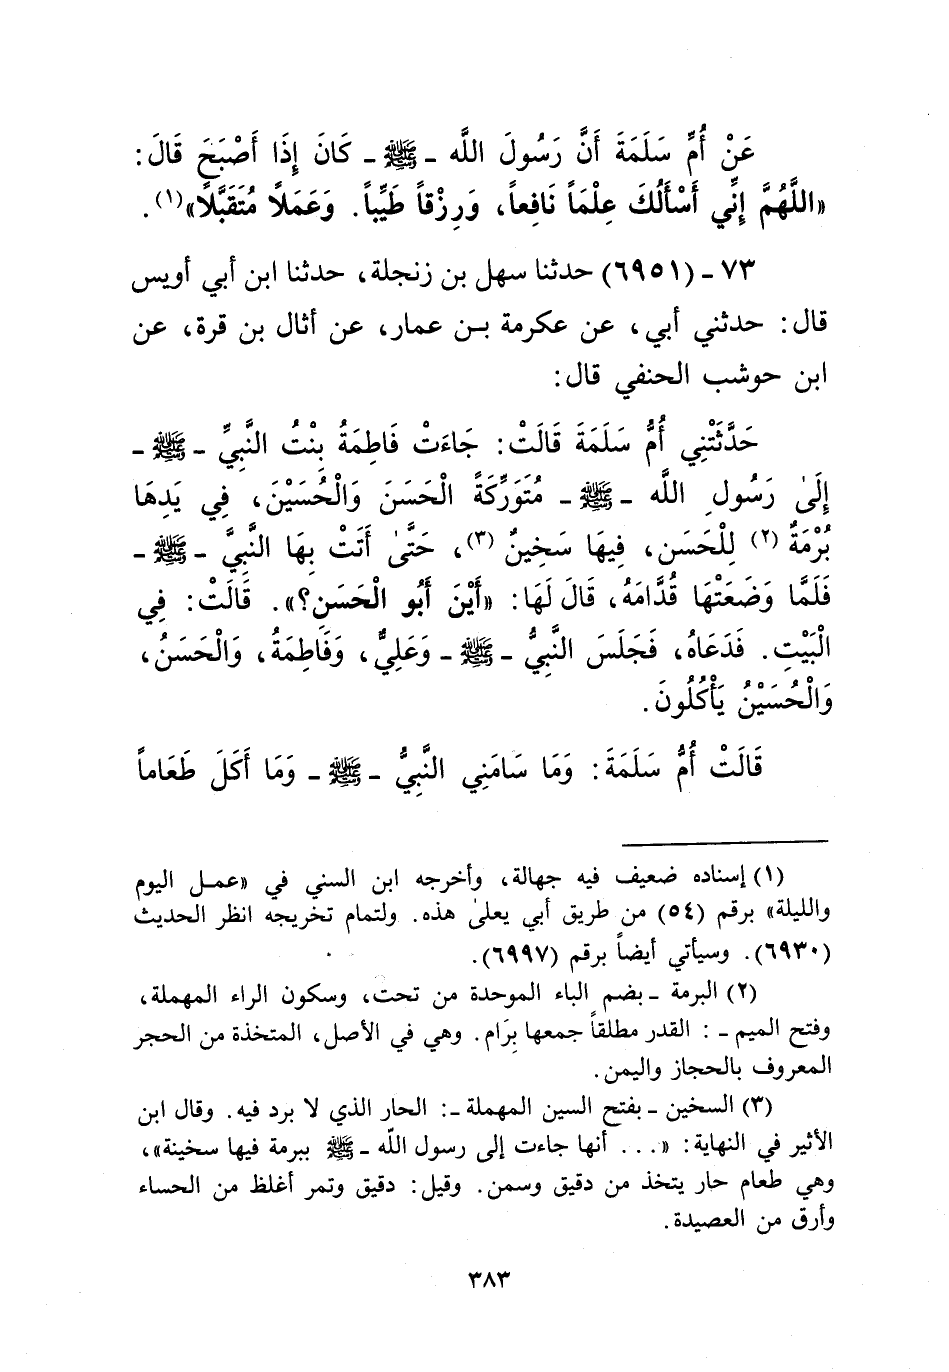 عَنْ أُمِّ سَلَمَةَ أَنَّ رَسُولَ اللَّه ـ ﷺ ـ كَانَ إِذَا أَصْبَحَ قَالَ:
«اللَّهُمَّ إِنِّي أَسْأَلُكَ عِلْمَاً نَافِعاً، وَرِزْقاً طَيِّباً. وَعَمَلاً مُتَقَبَّلاً»(١).
٧٣ ـ (٦٩٥١) حدثنا سهل بن زنجلة، حدثنا ابن أبي أويس
قال: حدثني أبي، عن عكرمة بن عمار، عن أثال بن قرة، عن
ابن حوشب الحنفي قال:
حَدَّثَتْنِي أُمُّ سَلَمَةَ قَالَتْ: جَاءَتْ فَاطِمَةُ بِنْتُ النَّبِيِّ ـ ﷺ ـ
إِلَىٰ رَسُولِ اللَّه ـ ﷺ ـ مُتَوَرِّكَةً الْحَسَنَ وَالْحُسَيْنَ، فِي يَدِهَا
بُرْمَةٌ (٢) لِلْحَسَنِ، فِيهَا سَخِينٌ (٣)، حَتَّىٰ أَتَتْ بِهَا النَّبِيَّ ـ ﷺ ـ
فَلَمَّا وَضَعَتْهَا قُدَّامَهُ، قَالَ لَهَا: «أَيْنَ أَبُو الْحَسَنِ؟». قَالَتْ: فِي
الْبَيْتِ. فَدَعَاهُ، فَجَلَسَ النَّبِيُّ ـ ﷺ ـ وَعَلِيٌّ، وَفَاطِمَةُ، وَالْحَسَنُ،
وَالْحُسَيْنُ يَأْكُلُونَ.
قَالَتْ أُمُّ سَلَمَةَ: وَمَا سَامَنِي النَّبِيُّ ـ ﷺ ـ وَمَا أَكَلَ طَعَاماً
(١) إسناده ضعيف فيه جهالة، وأخرجه ابن السني في «عمل اليوم
والليلة» برقم (٥٤) من طريق أبي يعلىٰ هذه. ولتمام تخريجه انظر الحديث
(٦٩٣٠). وسيأتي أيضاً برقم (٦٩٩٧).
(٢) البرمة ـ بضم الباء الموحدة من تحت، وسكون الراء المهملة،
وفتح الميم ـ: القدر مطلقاً جمعها بِرَام. وهي في الأصل، المتخذة من الحجر
المعروف بالحجاز واليمن.
(٣) السخين ـ بفتح السين المهملة ـ: الحار الذي لا برد فيه. وقال ابن
الأثير في النهاية: «... أنها جاءت إلى رسول اللّه ـ ﷺ ببرمة فيها سخينة»،
وهي طعام حار يتخذ من دقيق وسمن. وقيل: دقيق وتمر أغلظ من الحساء
وأرق من العصيدة.
٣٨٣